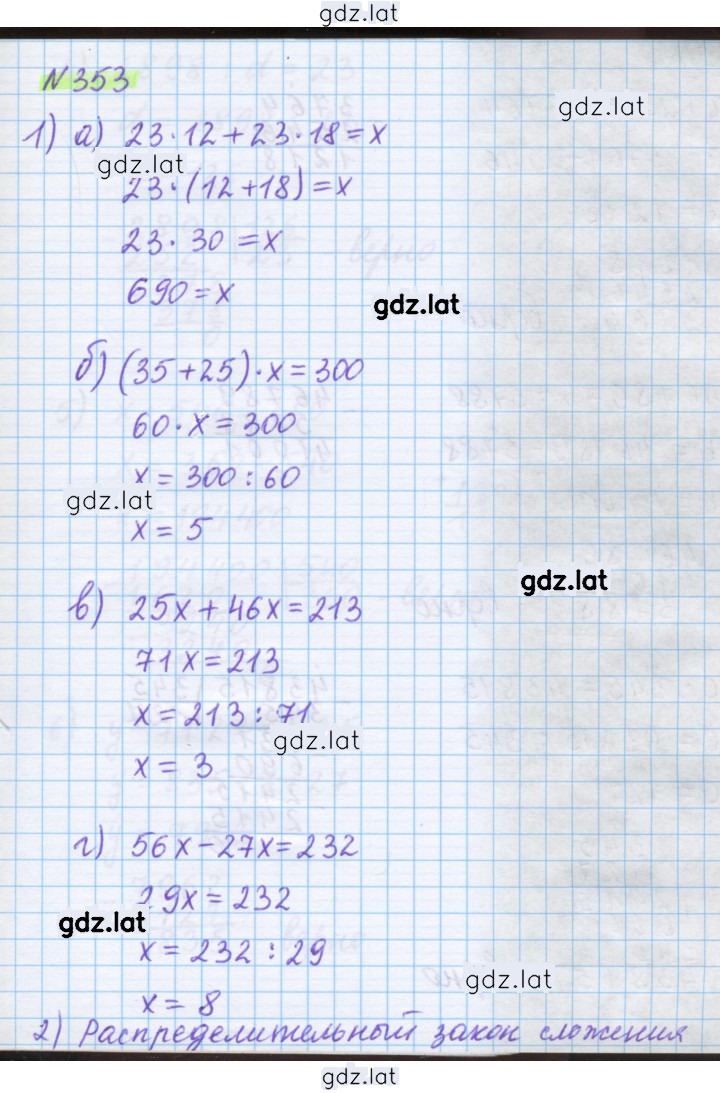 gdz.lat
№ 353
gdz.lat
1) а) 23·12+23·18=x
gdz.lat
23·(12+18)=x
23·30=x
690=x
gdz.lat
б) (35+25)·x=300
60·x=300
x=300:60
gdz.lat
x=5
gdz.lat
в) 25x+46x=213
71x=213
x=213:71
gdz.lat
x=3
г) 56x-27x=232
29x=232
gdz.lat
x=232:29
gdz.lat
x=8
2) Распределительный закон сложения
gdz.lat